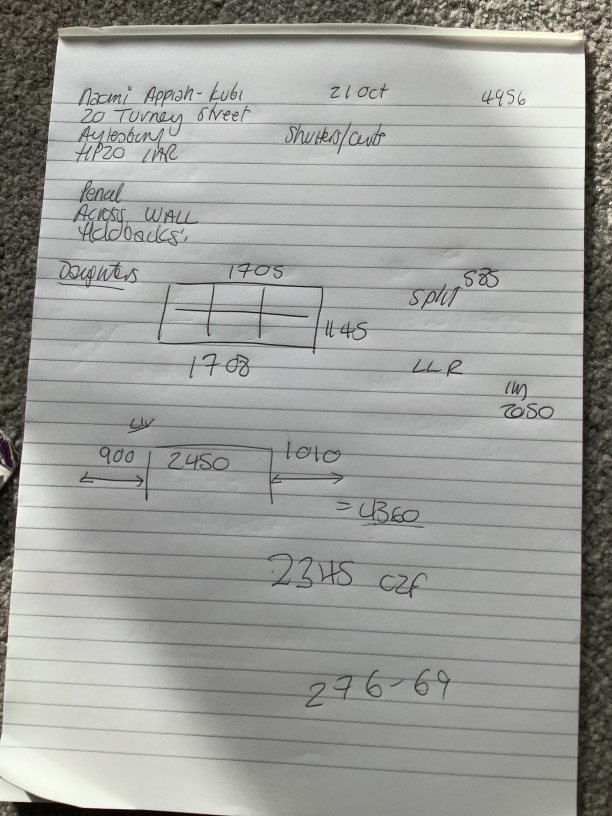 Naomi Appiah-Kubi 21 Oct 4956
20 Turney Street
Aylesbury Shutters/Curts
HP20
Penal
Across WALL
Holdbacks.
Daughters 1705 Split 585
1145
1708 LLR
2050
900 2450 1010
= 4360
2345 CZF
276-69